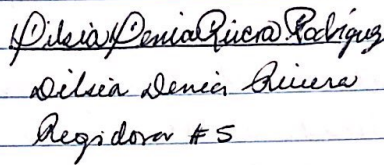 Dilsia Denia Rivera Rodríguez
Dilsia Denia Rivera
Regidora #5